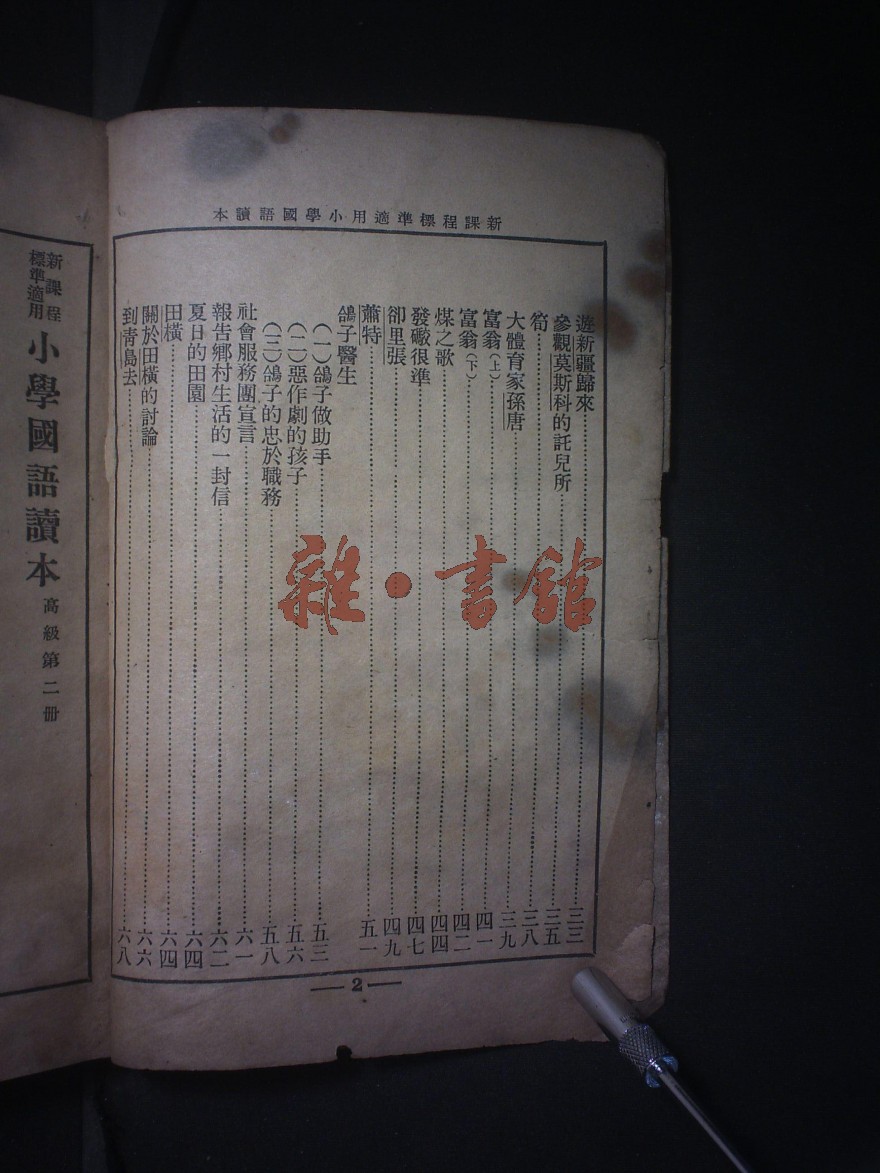 新課程標準適用小學國語讀本
遊新疆歸來 三三
參觀莫斯科的託兒所 三五
筍 三八
大體育家孫唐 三九
富翁(上) 四一
富翁(下) 四二
煤之歌 四四
發礮很準 四七
卻里張 四九
蕭特 五一
鴿子醫生
(一)鴿子做助手 五三
(二)惡作劇的孩子 五六
(三)鴿子的忠於職務 五八
社會服務團宣言 六一
報告鄉村生活的一封信 六二
夏日的田園 六四
田橫 六四
關於田橫的討論 六六
到青島去 六八
2
新課程標準適用 小學國語讀本 高級第二冊
雜·書館